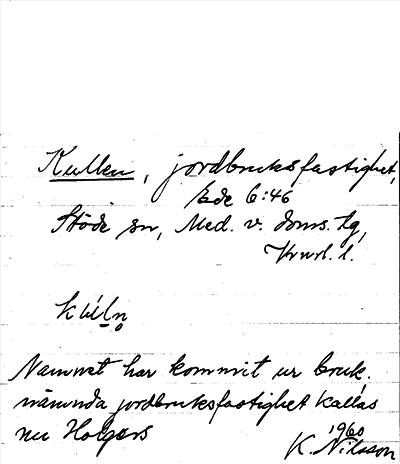 Kullen, jordbruksfastighet,
Ede 6:46
Stöde sn, Med. v. doms. tg,
Vrnrl. l.
kúln̥
Namnet har kommit ur bruk.
nämnda jordbruksfastighet kallas
nu Holgers
1960
K. Nilsson